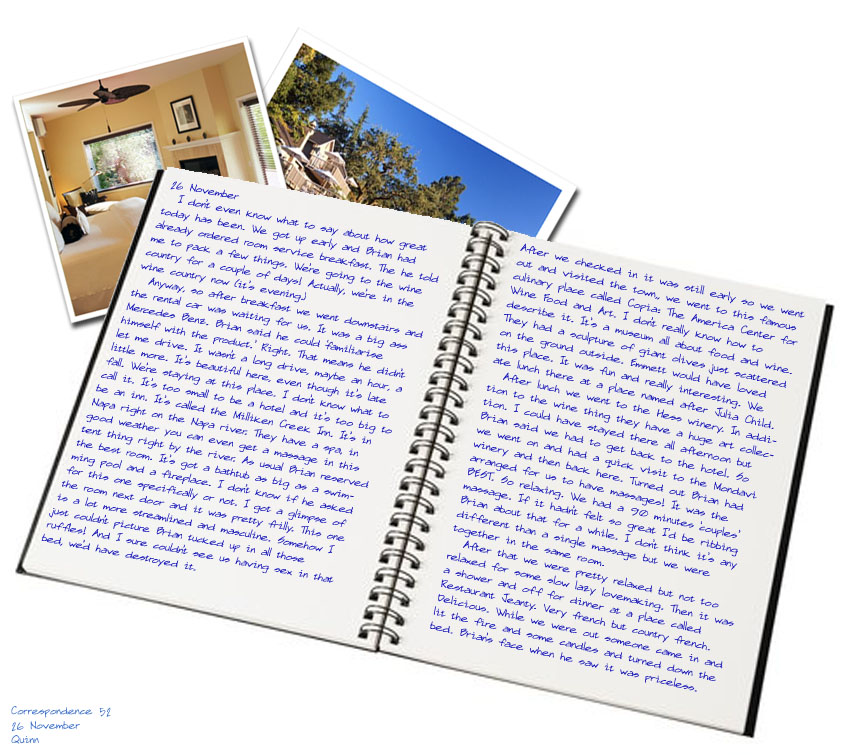 26 November
I don't even know what to say about how great
today has been. We got up early and Brian had
already ordered room service breakfast. The he told
me to pack a few things. We're going to the wine
country for a couple of days! Actually, we're in the
wine country now (it's evening)
Anyway, so after breakfast we went downstairs and
the rental car was waiting for us. It was a big ass
Mercedes Benz. Brian said he could familiarise
himself with the product.' Right. That means he didn't
let me drive. It wasn't a long drive, maybe an hour, a
little more. It's beautiful here, even though it's late
fall. We're staying at this place. I don't know what to
call it. It's too small to be a hotel and it's too big to
be an inn. It's called the Milliken Creek Inn. It's in
Napa right on the Napa river. They have a spa, in
good weather you can even get a massage in this
tent thing right by the river. As usual Brian reserved
the best room. It's got a bathtub as big as a swim-
ming pool and a fireplace. I don't know if he asked
for this one specifically or not. I got a glimpse of
the room next door and it was pretty frilly. This one
is a lot more streamlined and masculine. Somehow I
just couldn't picture Brian tucked up in all those
ruffles! And I sure couldn't see us having sex in that
bed, we'd have destroyed it.
After we checked in it was still early so we went
out and visited the town, we went to this famous
culinary place called Copia: The America Center for
Wine Food and Art. I don't really know how to
describe it. It's a museum all about food and wine.
They had a sculpture of giant olives just scattered
on the ground outside. Emmett would have loved
this place. It was fun and really interesting. We
ate lunch there at a place named after Julia Child.
After lunch we went to the Hess winery. In addi-
tion to the wine thing they have a huge art collec-
tion. I could have stayed there all afternoon but
Brian said we had to get back to the hotel. So
we went on and had a quick visit to the Mondavi
winery and then back here. Turned out Brian had
arranged for us to have massages! It was the
BEST. So relaxing. We had a 90 minutes 'couples'
massage. If it hadn't felt so great I'd be ribbing
Brian about that for a while. I don't think it's any
different than a single massage but we were
together in the same room.
After that we were pretty relaxed but not too
relaxed for some slow lazy lovemaking. Then it was
a shower and off for dinner at a place called
Restaurant Jeanty. Very french but country french.
Delicious. While we were out someone came in and
lit the fire and some candles and turned down the
bed. Brian's face when he saw it was priceless.
Correspondence 52
26 November
Quinn